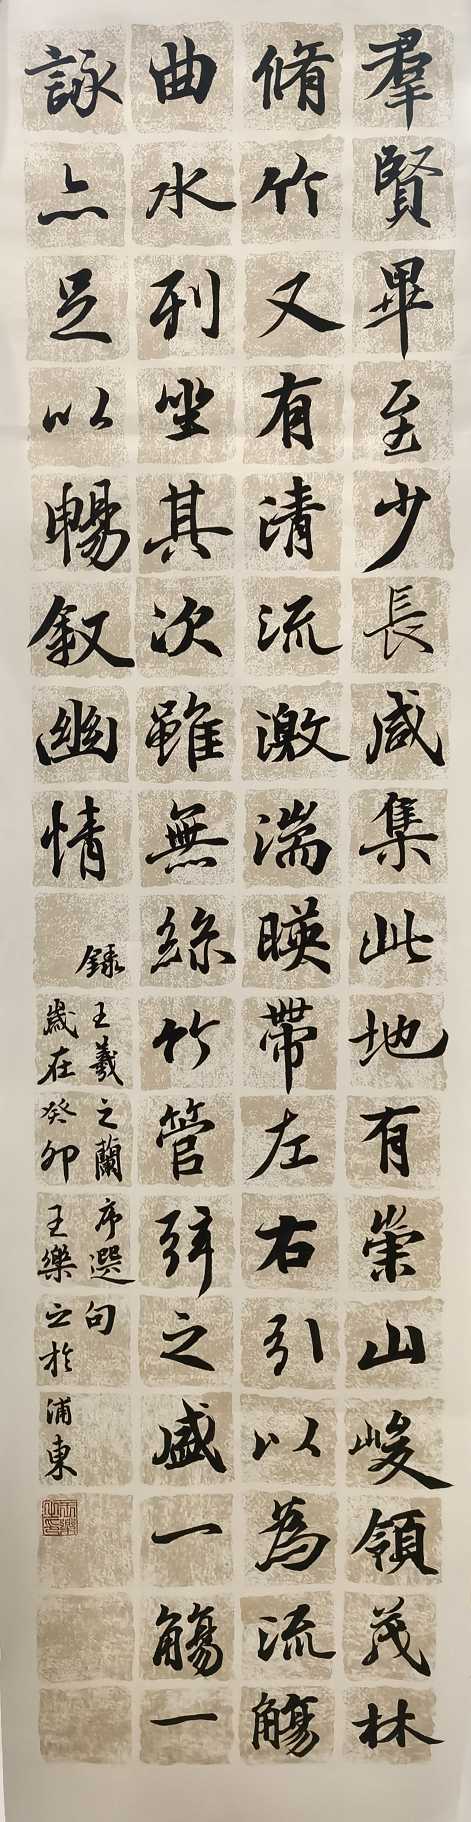 羣賢畢至少長咸集此地有崇山峻領茂林
脩竹又有清流激湍暎帶左右引以為流觴
曲水列坐其次雖無絲竹管弦之盛一觴一
詠亦足以暢叙幽情
錄王羲之蘭序選句
歲在癸卯王樂之於浦東